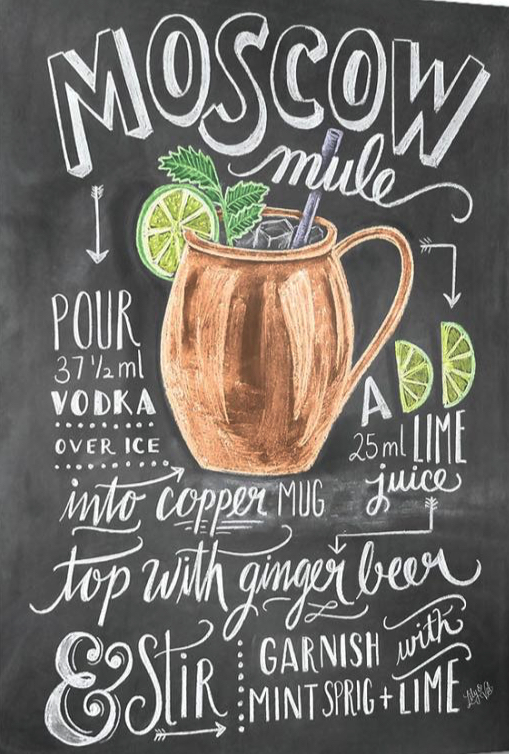 MOSCOW
mule
POUR
37 1/2 ml
VODKA
OVER ICE
into copper MUG
ADD
25 ml LIME
juice
top with ginger beer
& STIR
GARNISH with
MINT SPRIG + LIME
Lily & Val